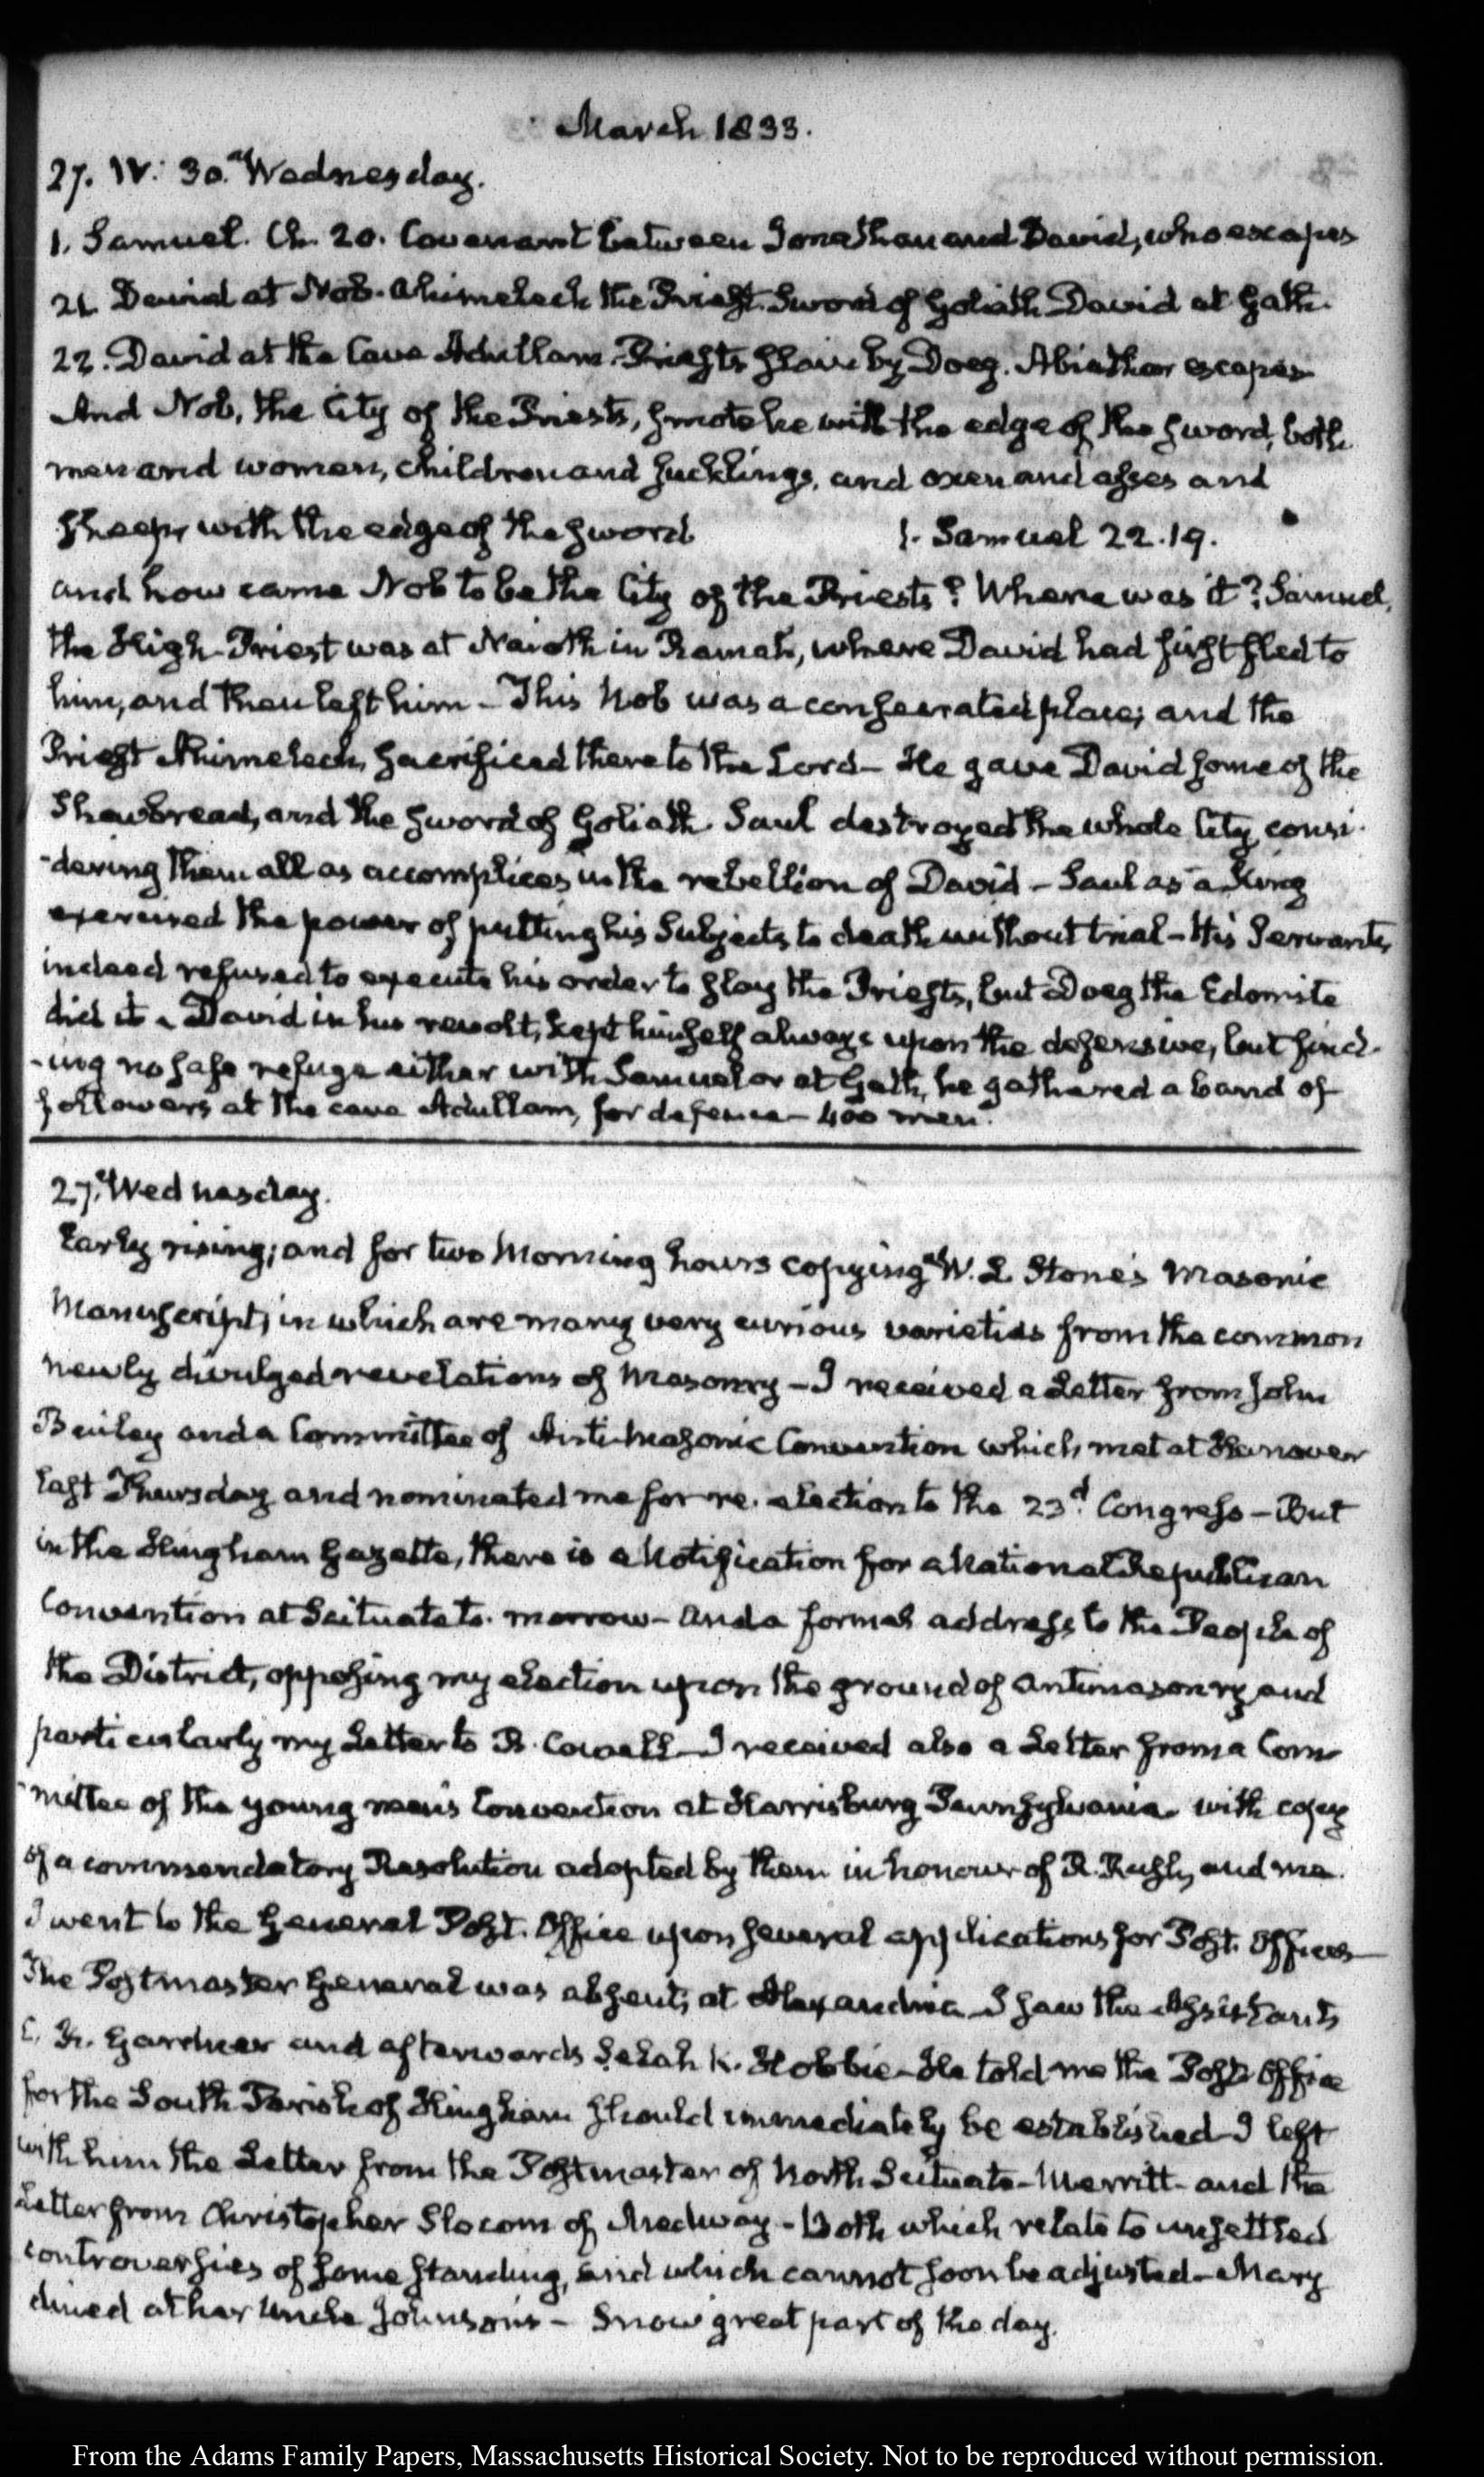 March 1833.
27. IV: 30. Wednesday.
1. Samuel. Ch. 20. Covenant between Jonathan and David, who escapes
21. David at Nob. Ahimelech the Priest. Sword of Goliath David at Gath.
22. David at the Cave Adullam. Priests slain by Doeg. Abiathar escapes
And Nob, the City of the Priests, smote he with the edge of the sword, both
men and women, children and sucklings, and oxen and asses and
sheep, with the edge of the sword 1. Samuel 22.19.
and how came Nob to be the City of the Priests? Where was it? Samuel,
the High-Priest was at Naioth in Ramah, where David had first fled to
him, and then left him – This Nob was a consecrated place; and the
Priest Ahimelech, sacrificed there to the Lord – He gave David some of the
Shewbread, and the sword of Goliath. Saul destroyed the whole City, consi-
-dering them all as accomplices in the rebellion of David – Saul as a King
exercised the power of putting his Subjects to death without trial – His Servants,
indeed refused to execute his order to slay the Priests, but Doeg the Edomite
did it – David in his revolt, kept himself always upon the defensive, but find-
-ing no safe refuge either with Samuel or at Gath, he gathered a band of
followers at the cave Adullam, for defence – 400 men.
27. Wednesday.
Early rising; and for two Morning hours copying W. L. Stone's Masonic
Manuscript, in which are many very curious varieties from the common
newly divulged revelations of Masonry – I received a Letter from John
Bailey and a Committee of Anti-Masonic Convention which met at Hanover
last Thursday and nominated me for re-election to the 23d. Congress – But
in the Hingham Gazette, there is a Notification for a National Republican
Convention at Scituate to-morrow – and a formal address to the People of
the District, opposing my election upon the ground of Antimasonry and
particularly my Letter to B. Cowell – I received also a Letter from a Com-
-mittee of the young men's Convention at Harrisburg Pennsylvania with copy
of a commendatory Resolution adopted by them in honour of R. Rush, and me.
I went to the General Post-Office upon several applications for Post-Offices –
The Postmaster General was absent, at Alexandria – I saw the Assistants
C. K. Gardner and afterwards Selah K. Hobbie – He told me the Post-Office
for the South Parish of Hingham should immediately be established – I left
with him the Letter from the Postmaster of North Scituate – Merritt – and the
Letter from Christopher Slocom of Medway – Both which relate to unsettled
controversies of some standing, and which cannot soon be adjusted – Mary
dined at her Uncle Johnson's – Snow great part of the day.
From the Adams Family Papers, Massachusetts Historical Society. Not to be reproduced without permission.